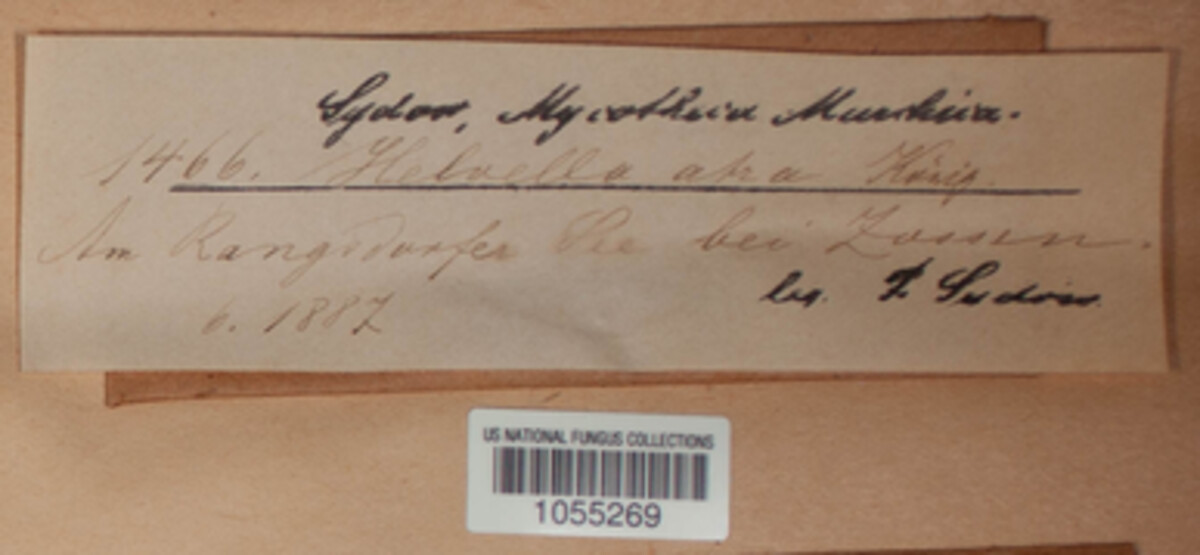 Sydow, Mycotheca Marchica.
1466. Helvella atra König.
Am Rangsdorfer See bei Zossen.
leg. P. Sydow.
6. 1887
US NATIONAL FUNGUS COLLECTIONS
1055269